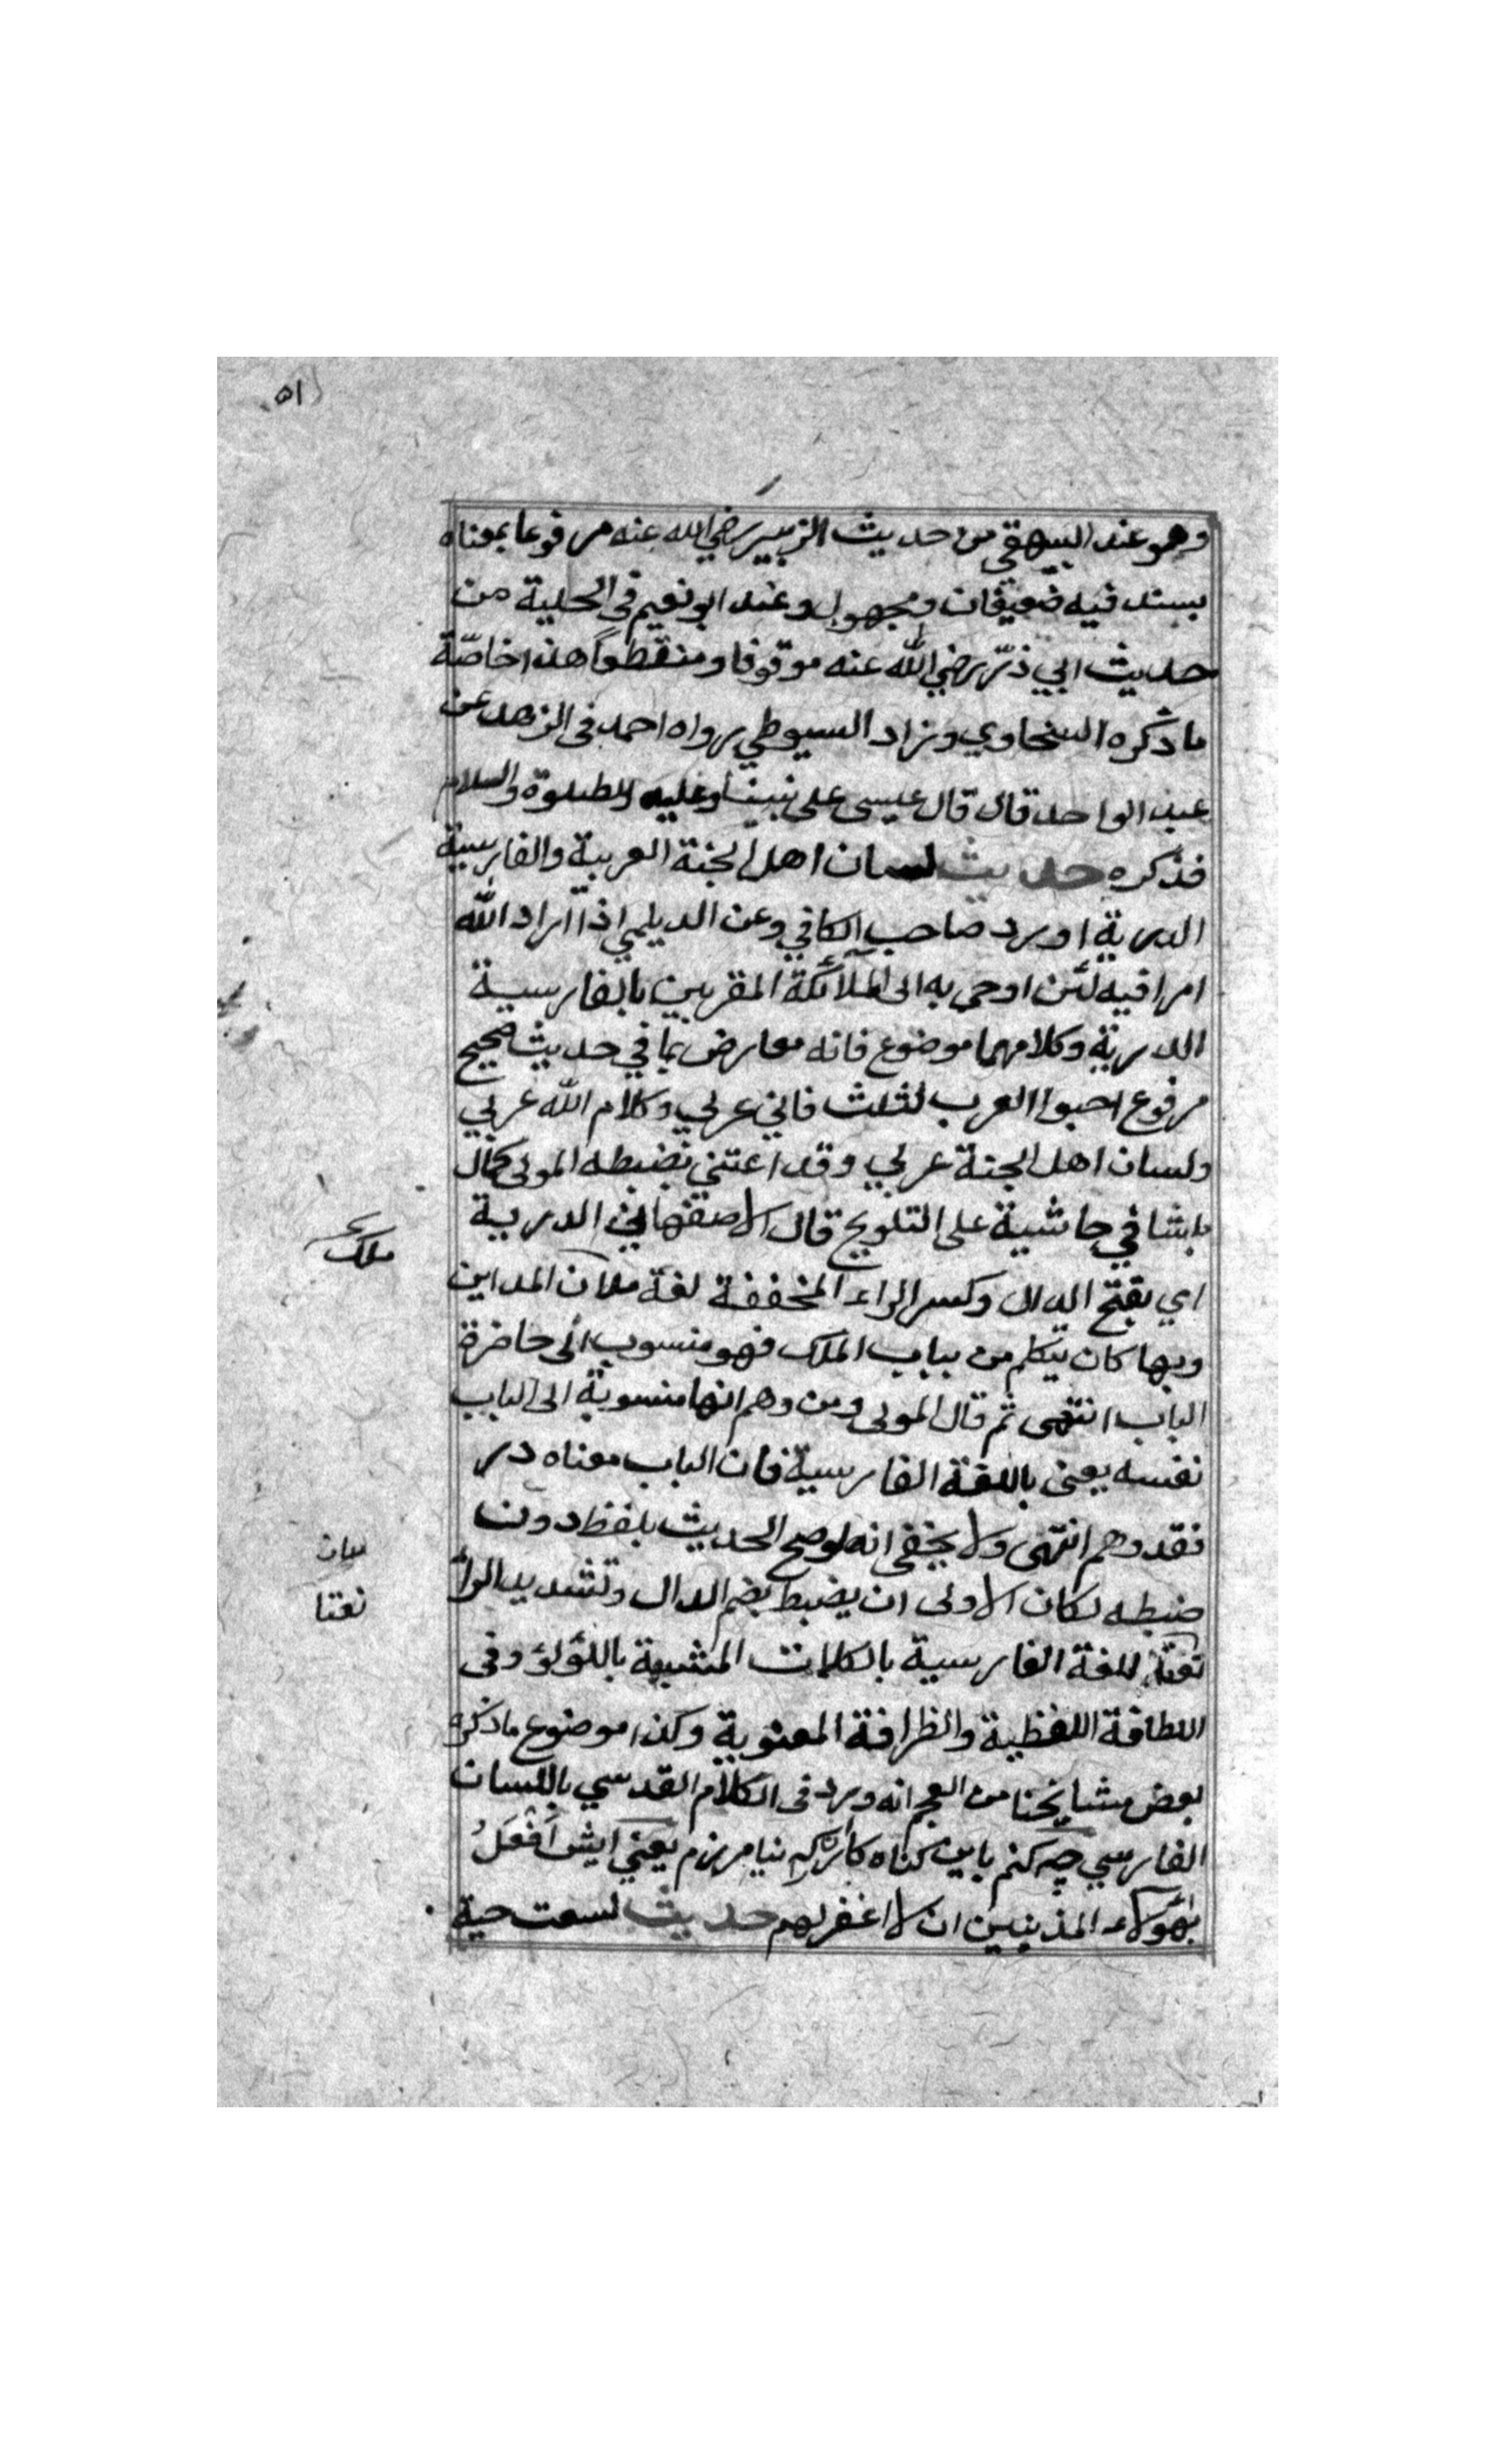 ٥١
وهو عند البيهقي من حديث الزبير رضي الله عنه مرفوعا بمعناه
بسند فيه ضعيفان ومجهول وعند ابو نعيم فى الحلية من
حديث ابي ذرّ رضي الله عنه موقوفا ومنقطعاً هذا خاصّة
ما ذكره السخاوي وزاد السيوطي رواه احمد فى الزهد عن
عبد الواحد قال قال عيسى على نبينا وعليه الصلوة والسلام
فذكره حديث لسان اهل الجنة العربية والفارسية
الدرية اورد صاحب الكافي وعن الديلمي اذا اراد الله
امرا فيه لئن اوحى به الى الملآئكة المقربين بالفارسية
الدرية وكلامهما موضوع فانه معارض بما في حديث صحيح
مرفوع احبوا العرب لثلث فاني عربي وكلام الله عربي
ولسان اهل الجنة عربي وقد اعتنى بضبطه المولى كمال
باشا في حاشية على التلويح قال الاصفهاني الدربية
ملك
اي بفتح الدال وكسر الراء المخففة لغة ملان المداين
وبها كان يتكلم من بباب الملك فهو منسوب الى حاضرة
الباب انتهى ثم قال المولى ومن وهم انها منسوبة الى الباب
نفسه يعنى باللغة الفارسية فان الباب معناه در
فقد وهم انتهى ولا يخفى انه لو صح الحديث بلفظ دون
ضبطه لكان الاولى ان يضبط بضم الدال وتشديد الراء
نعتا
نعتا للغة الفارسية بالكلمات المشبهة باللؤلؤ وفى
اللطافة اللفظية والظرافة المعنوية وكذا موضوع ما ذكره
بعض مشايخنا من العجم انه ورد فى الكلام القدسي باللسان
الفارسي چه كنم باين كناه كاران كه نيامرزم يعني ايش اَفْعَلُ
بهؤلاء المذنبين ان لا اغفر لهم حديث لسعت حية